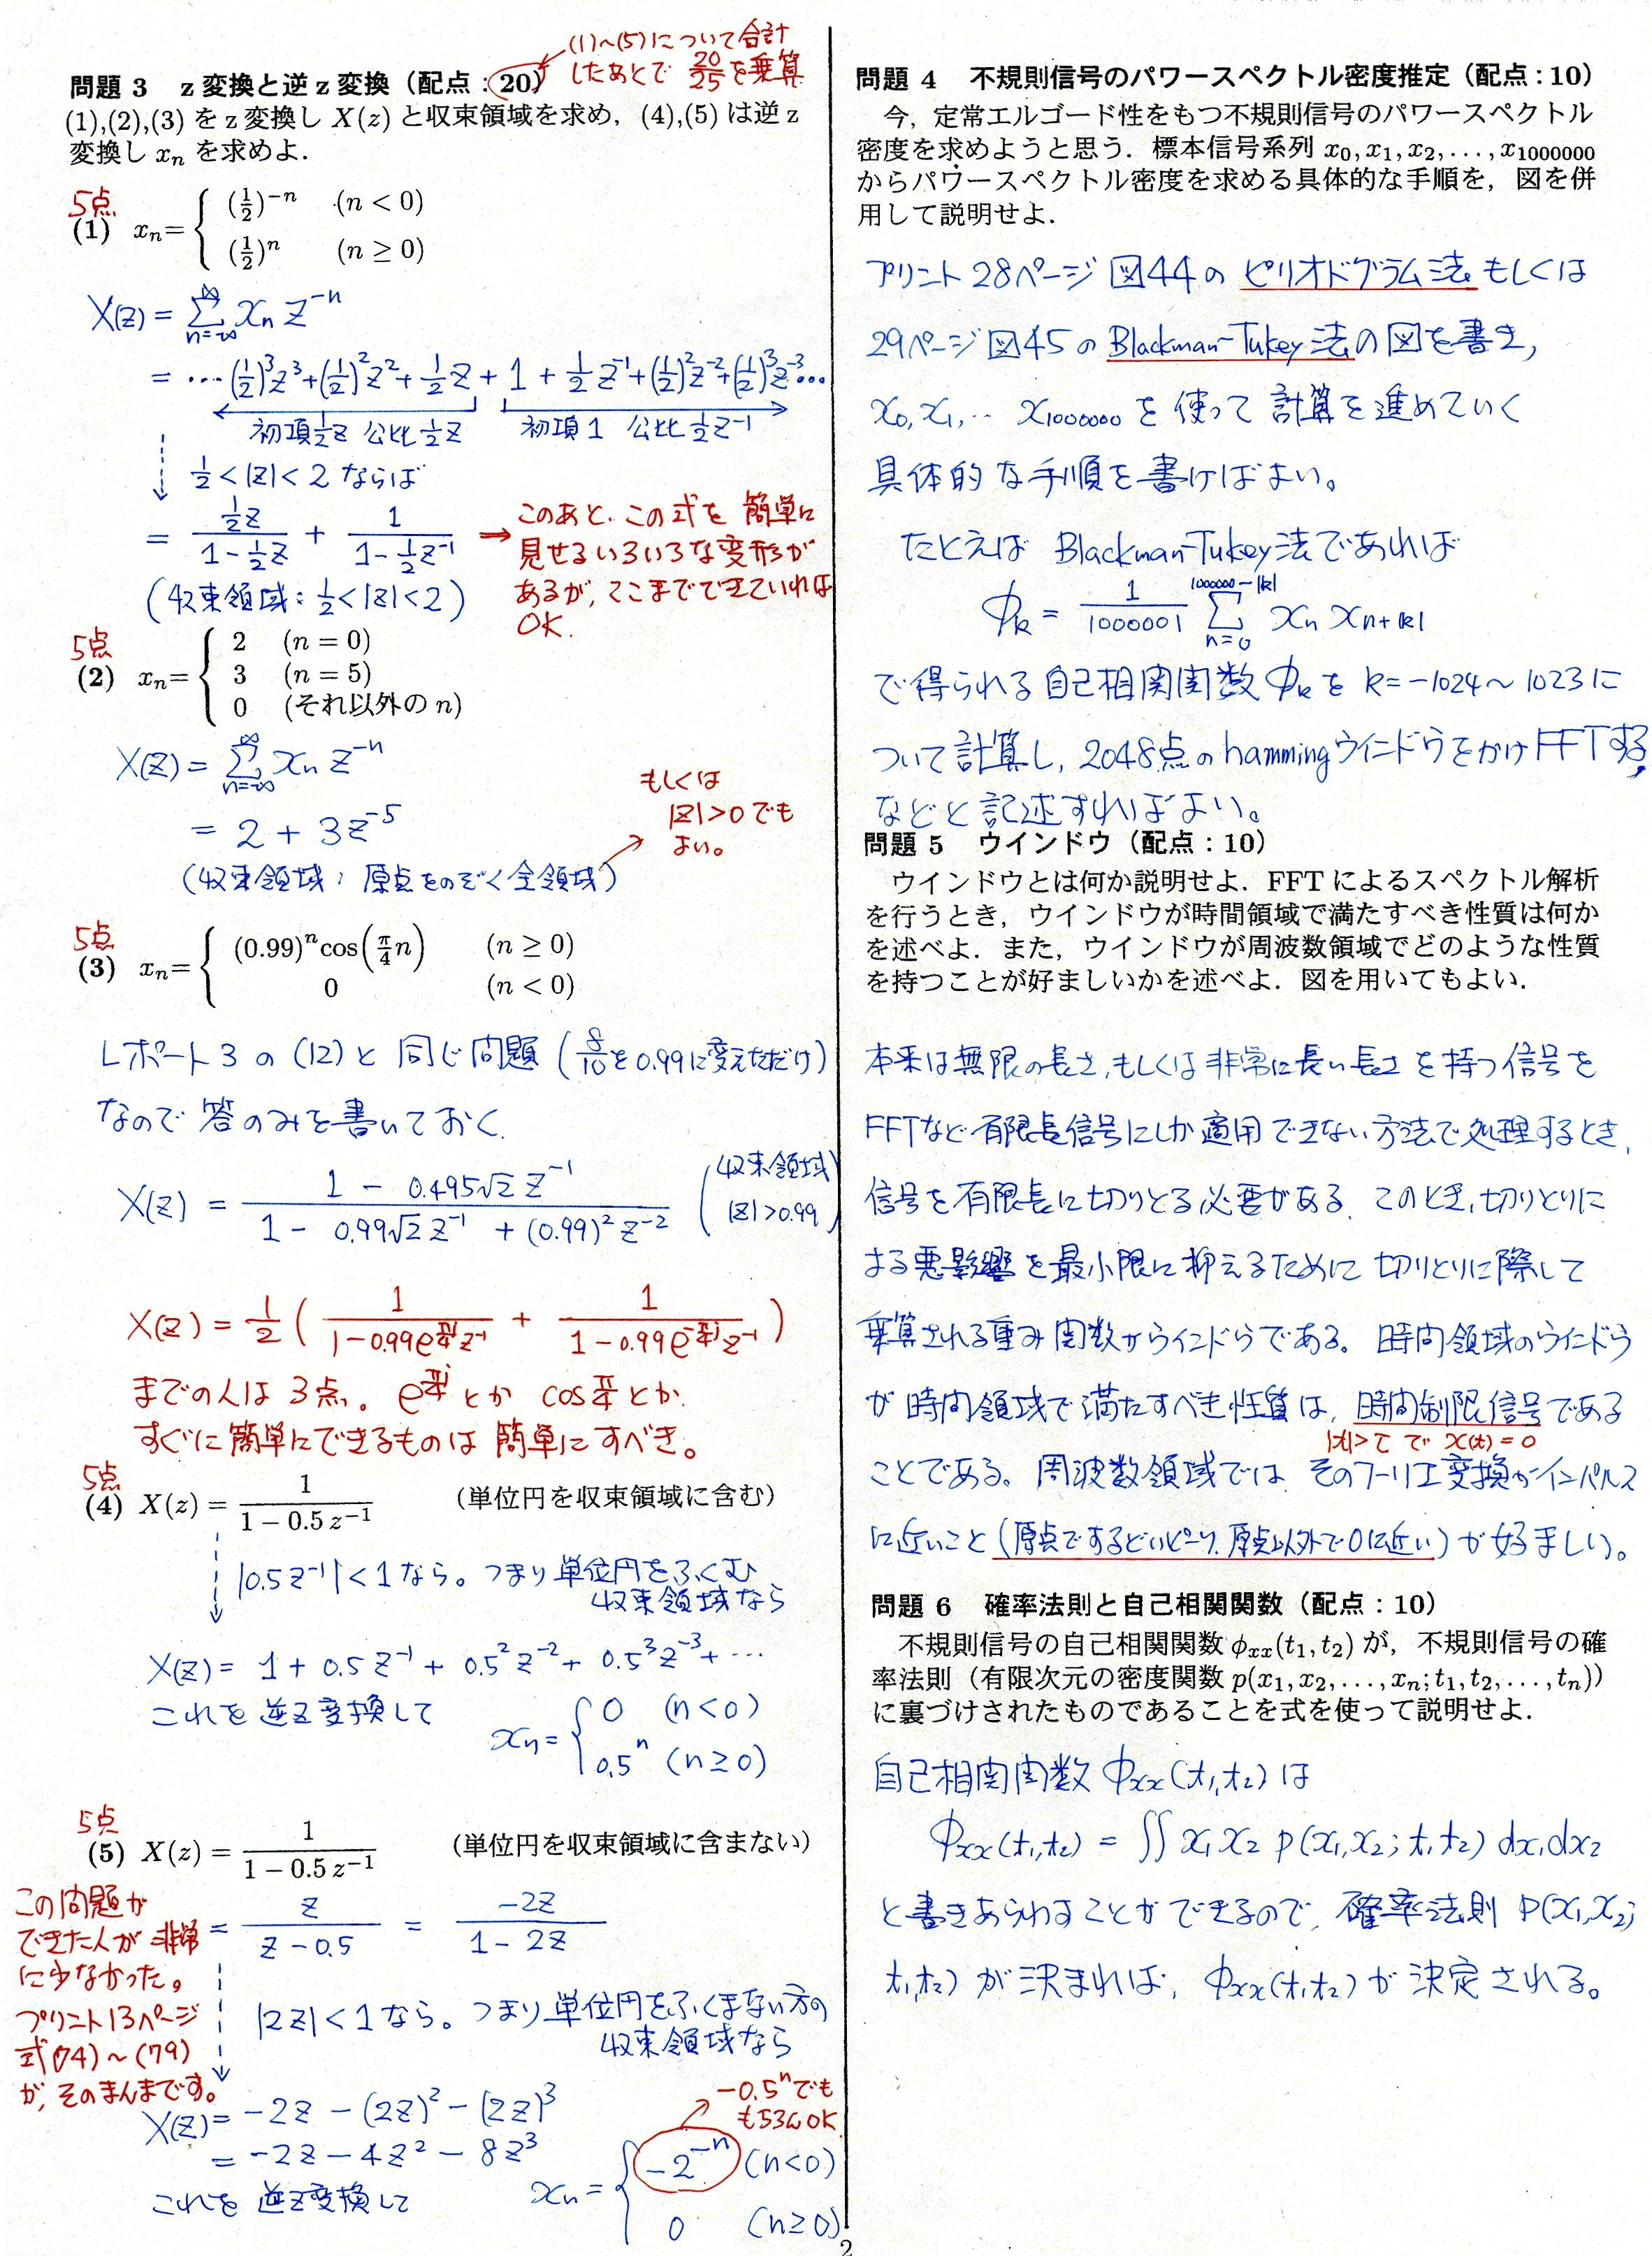 (1)~(5)について合計
したあとで 20/25 を乗算
問題 3 z 変換と逆 z 変換（配点：20）
(1),(2),(3) を z 変換し X(z) と収束領域を求め，(4),(5) は逆 z
変換し xₙ を求めよ．
5点
(1) xₙ= { (1/2)⁻ⁿ (n < 0)
(1/2)ⁿ (n ≥ 0)
X(z) = Σ_{n=-∞}^{∞} xₙ z⁻ⁿ
= … (1/2)³z³+(1/2)²z²+1/2 z + 1 + 1/2 z⁻¹+(1/2)²z⁻²+(1/2)³z⁻³…
初項1/2 z 公比1/2 z 初項1 公比1/2 z⁻¹
1/2<|z|<2 ならば
= (1/2 z)/(1-1/2 z) + 1/(1-1/2 z⁻¹)
(収束領域: 1/2<|z|<2)
→このあと、この式を簡単に
見せるいろいろな変形が
あるが、ここまでできていれば
OK.
5点
(2) xₙ= { 2 (n = 0)
3 (n = 5)
0 (それ以外の n)
X(z) = Σ_{n=-∞}^{∞} xₙ z⁻ⁿ
= 2 + 3z⁻⁵
(収束領域: 原点をのぞく全領域)
もしくは
|z|>0でも
よい。
5点
(3) xₙ= { (0.99)ⁿcos(π/4 n) (n ≥ 0)
0 (n < 0)
レポート3の(12)と同じ問題 (8/10を0.99に変えただけ)
なので答のみを書いておく.
X(z) = (1 - 0.495√2 z⁻¹)/(1 - 0.99√2 z⁻¹ + (0.99)² z⁻²) (収束領域 |z|>0.99)
X(z) = 1/2 ( 1/(1-0.99e^{π/4 j}z⁻¹) + 1/(1-0.99e^{-π/4 j}z⁻¹) )
までの人は3点。e^{π/4 j}とか cosπ/4とか.
すぐに簡単にできるものは簡単にすべき。
5点
(4) X(z) = 1/(1 − 0.5 z⁻¹) （単位円を収束領域に含む）
|0.5z⁻¹|<1なら。つまり単位円をふくむ
収束領域なら
X(z) = 1 + 0.5z⁻¹ + 0.5²z⁻² + 0.5³z⁻³ + …
これを逆z変換して
xₙ = { 0 (n<0)
0.5ⁿ (n≥0)
5点
(5) X(z) = 1/(1 − 0.5 z⁻¹) （単位円を収束領域に含まない）
= z/(z-0.5) = -2z/(1-2z)
この問題が
できた人が非常
に少なかった。
プリント13ページ
式(74)~(79)
が、そのまんまです。
|2z|<1なら。つまり単位円をふくまない方の
収束領域なら
X(z) = -2z - (2z)² - (2z)³
= -2z - 4z² - 8z³
これを逆z変換して
-0.5ⁿでも
もちろんOK
xₙ = { -2⁻ⁿ (n<0)
0 (n≥0)
問題 4 不規則信号のパワースペクトル密度推定（配点：10）
今，定常エルゴード性をもつ不規則信号のパワースペクトル
密度を求めようと思う．標本信号系列 x₀, x₁, x₂, . . . , x₁₀₀₀₀₀₀
からパワースペクトル密度を求める具体的な手順を，図を併
用して説明せよ．
プリント28ページ 図44のピリオドグラム法もしくは
29ページ図45のBlackman-Tukey法の図を書き,
x₀, x₁, ‥ x₁₀₀₀₀₀₀を使って計算を進めていく
具体的な手順を書けばよい。
たとえば Blackman-Tukey法であれば
ϕₖ = 1/1000001 Σ_{n=0}^{1000000-|k|} xₙ xₙ₊|ₖ|
で得られる自己相関関数ϕₖを k=-1024~1023に
ついて計算し, 2048点のhammingウインドウをかけFFTする,
などと記述すればよい。
問題 5 ウインドウ（配点：10）
ウインドウとは何か説明せよ．FFT によるスペクトル解析
を行うとき，ウインドウが時間領域で満たすべき性質は何か
を述べよ．また，ウインドウが周波数領域でどのような性質
を持つことが好ましいかを述べよ．図を用いてもよい．
本来は無限の長さ,もしくは非常に長い長さを持つ信号を
FFTなど有限長信号にしか適用できない方法で処理するとき,
信号を有限長に切りとる必要がある. このとき,切りとりに
よる悪影響を最小限に抑えるために切りとりに際して
乗算される重み関数がウインドウである。時間領域のウインドウ
が時間領域で満たすべき性質は, 時間制限信号である
|t|>τで x(t)=0
ことである。周波数領域では そのフーリエ変換がインパルス
に近いこと(原点でするどいピーク,原点以外で0に近い)が好ましい。
問題 6 確率法則と自己相関関数（配点：10）
不規則信号の自己相関関数 ϕₓₓ(t₁, t₂) が，不規則信号の確
率法則（有限次元の密度関数 p(x₁, x₂, . . . , xₙ; t₁, t₂, . . . , tₙ)）
に裏づけされたものであることを式を使って説明せよ．
自己相関関数 ϕₓₓ(t₁,t₂)は
ϕₓₓ(t₁,t₂) = ∬ x₁ x₂ p(x₁,x₂; t₁ t₂) dx₁dx₂
と書きあらわすことができるので, 確率法則 p(x₁,x₂;
t₁,t₂)が決まれば, ϕₓₓ(t₁,t₂)が決定される。
2